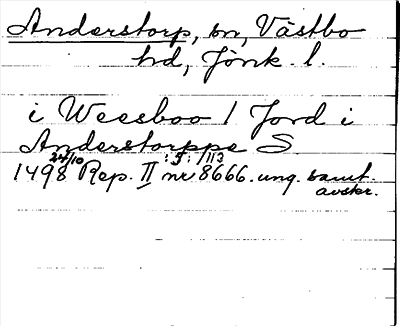 Anderstorp, sn, Västbo
hd, Jönk. l.
i Wessboo / Jord i
Anderstorppa S
24/10 :5: /113
1498 Rep. II nr 8666. ung. samt.
avskr.